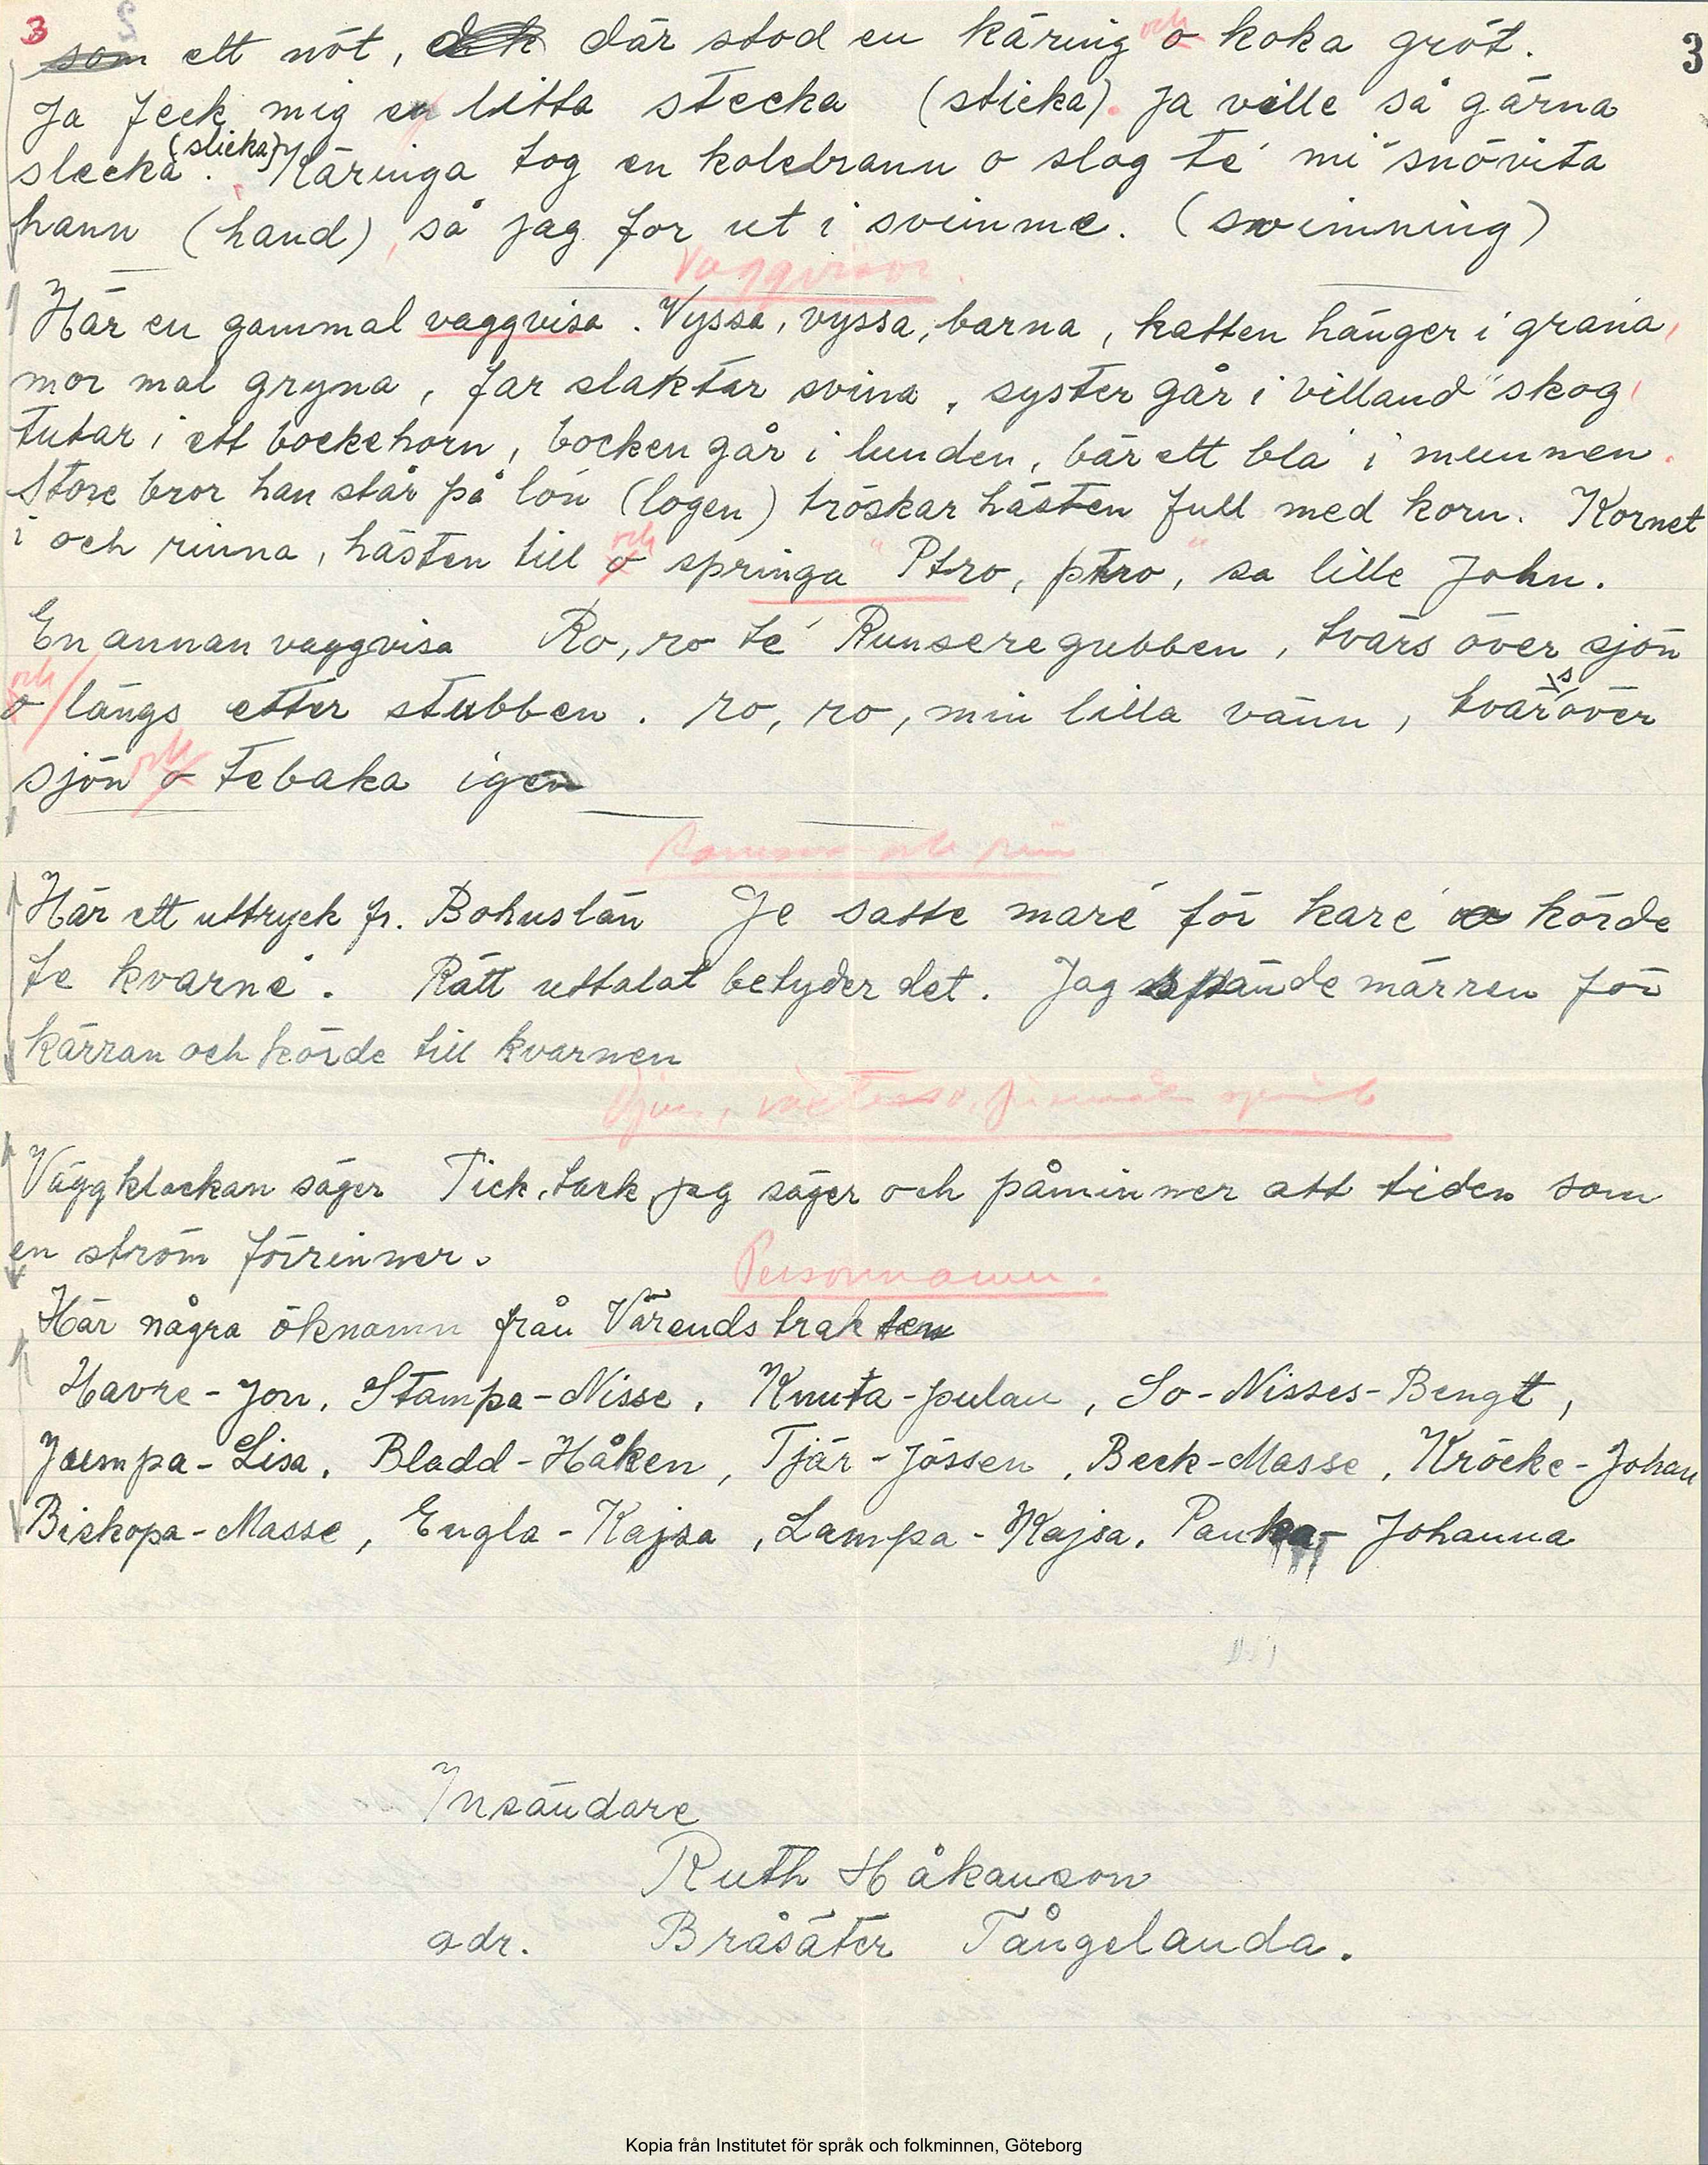 3
3
som ett nöt, där stod en käring och o koka gröt.
Ja feck mig en litta stecka (sticka). Ja ville så gärna
slecka (slicka). Käringa tog en kolebrann o slog te' mi snövita
hann (hand), så jag for ut i svimme. (swimning)
Vaggvisor.
Här en gammal vaggvisa. Vyssa, vyssa, barna, katten hänger i grana,
mor mal gryna, far slaktar svina, syster går i villand skog,
tutar i ett bockehorn, bocken går i lunden, bär ett bla i munnen.
Store bror han står på lön (logen) tröskar hästen full med korn. Kornet
i och rinna, hästen till och o springa "Ptro, ptro", sa lille John.
En annan vaggvisa Ro, ro te' Runseregubben, tvärs över sjön
och o längs etter stubben. ro, ro, min lilla vänn, tvärs över
sjön och o tebaka igen
Ramsor och rim
Här ett uttryck fr. Bohuslän Je satte mare' för kare' o körde
te kvarne'. Rätt uttalat betyder det. Jag spände märren för
kärran och körde till kvarnen
Väggklockan säger Tick, tack, jag säger och påminner att tiden som
en ström förrinner.
Personnamn.
Här några öknamn från Värendstrakten
Havre-Jon, Stampa-Nisse, Knuta-julan, So-Nisses-Bengt,
Jumpa-Lisa, Bladd-Håken, Tjär-Jössen, Beck-Masse, Kröcke-Johan
Biskopa-Masse, Engla-Kajsa, Lampa-Kajsa, Panka-Johanna
Insändare
Ruth Håkanson
adr. Bråsäter Tångelanda.
Kopia från Institutet för språk och folkminnen, Göteborg